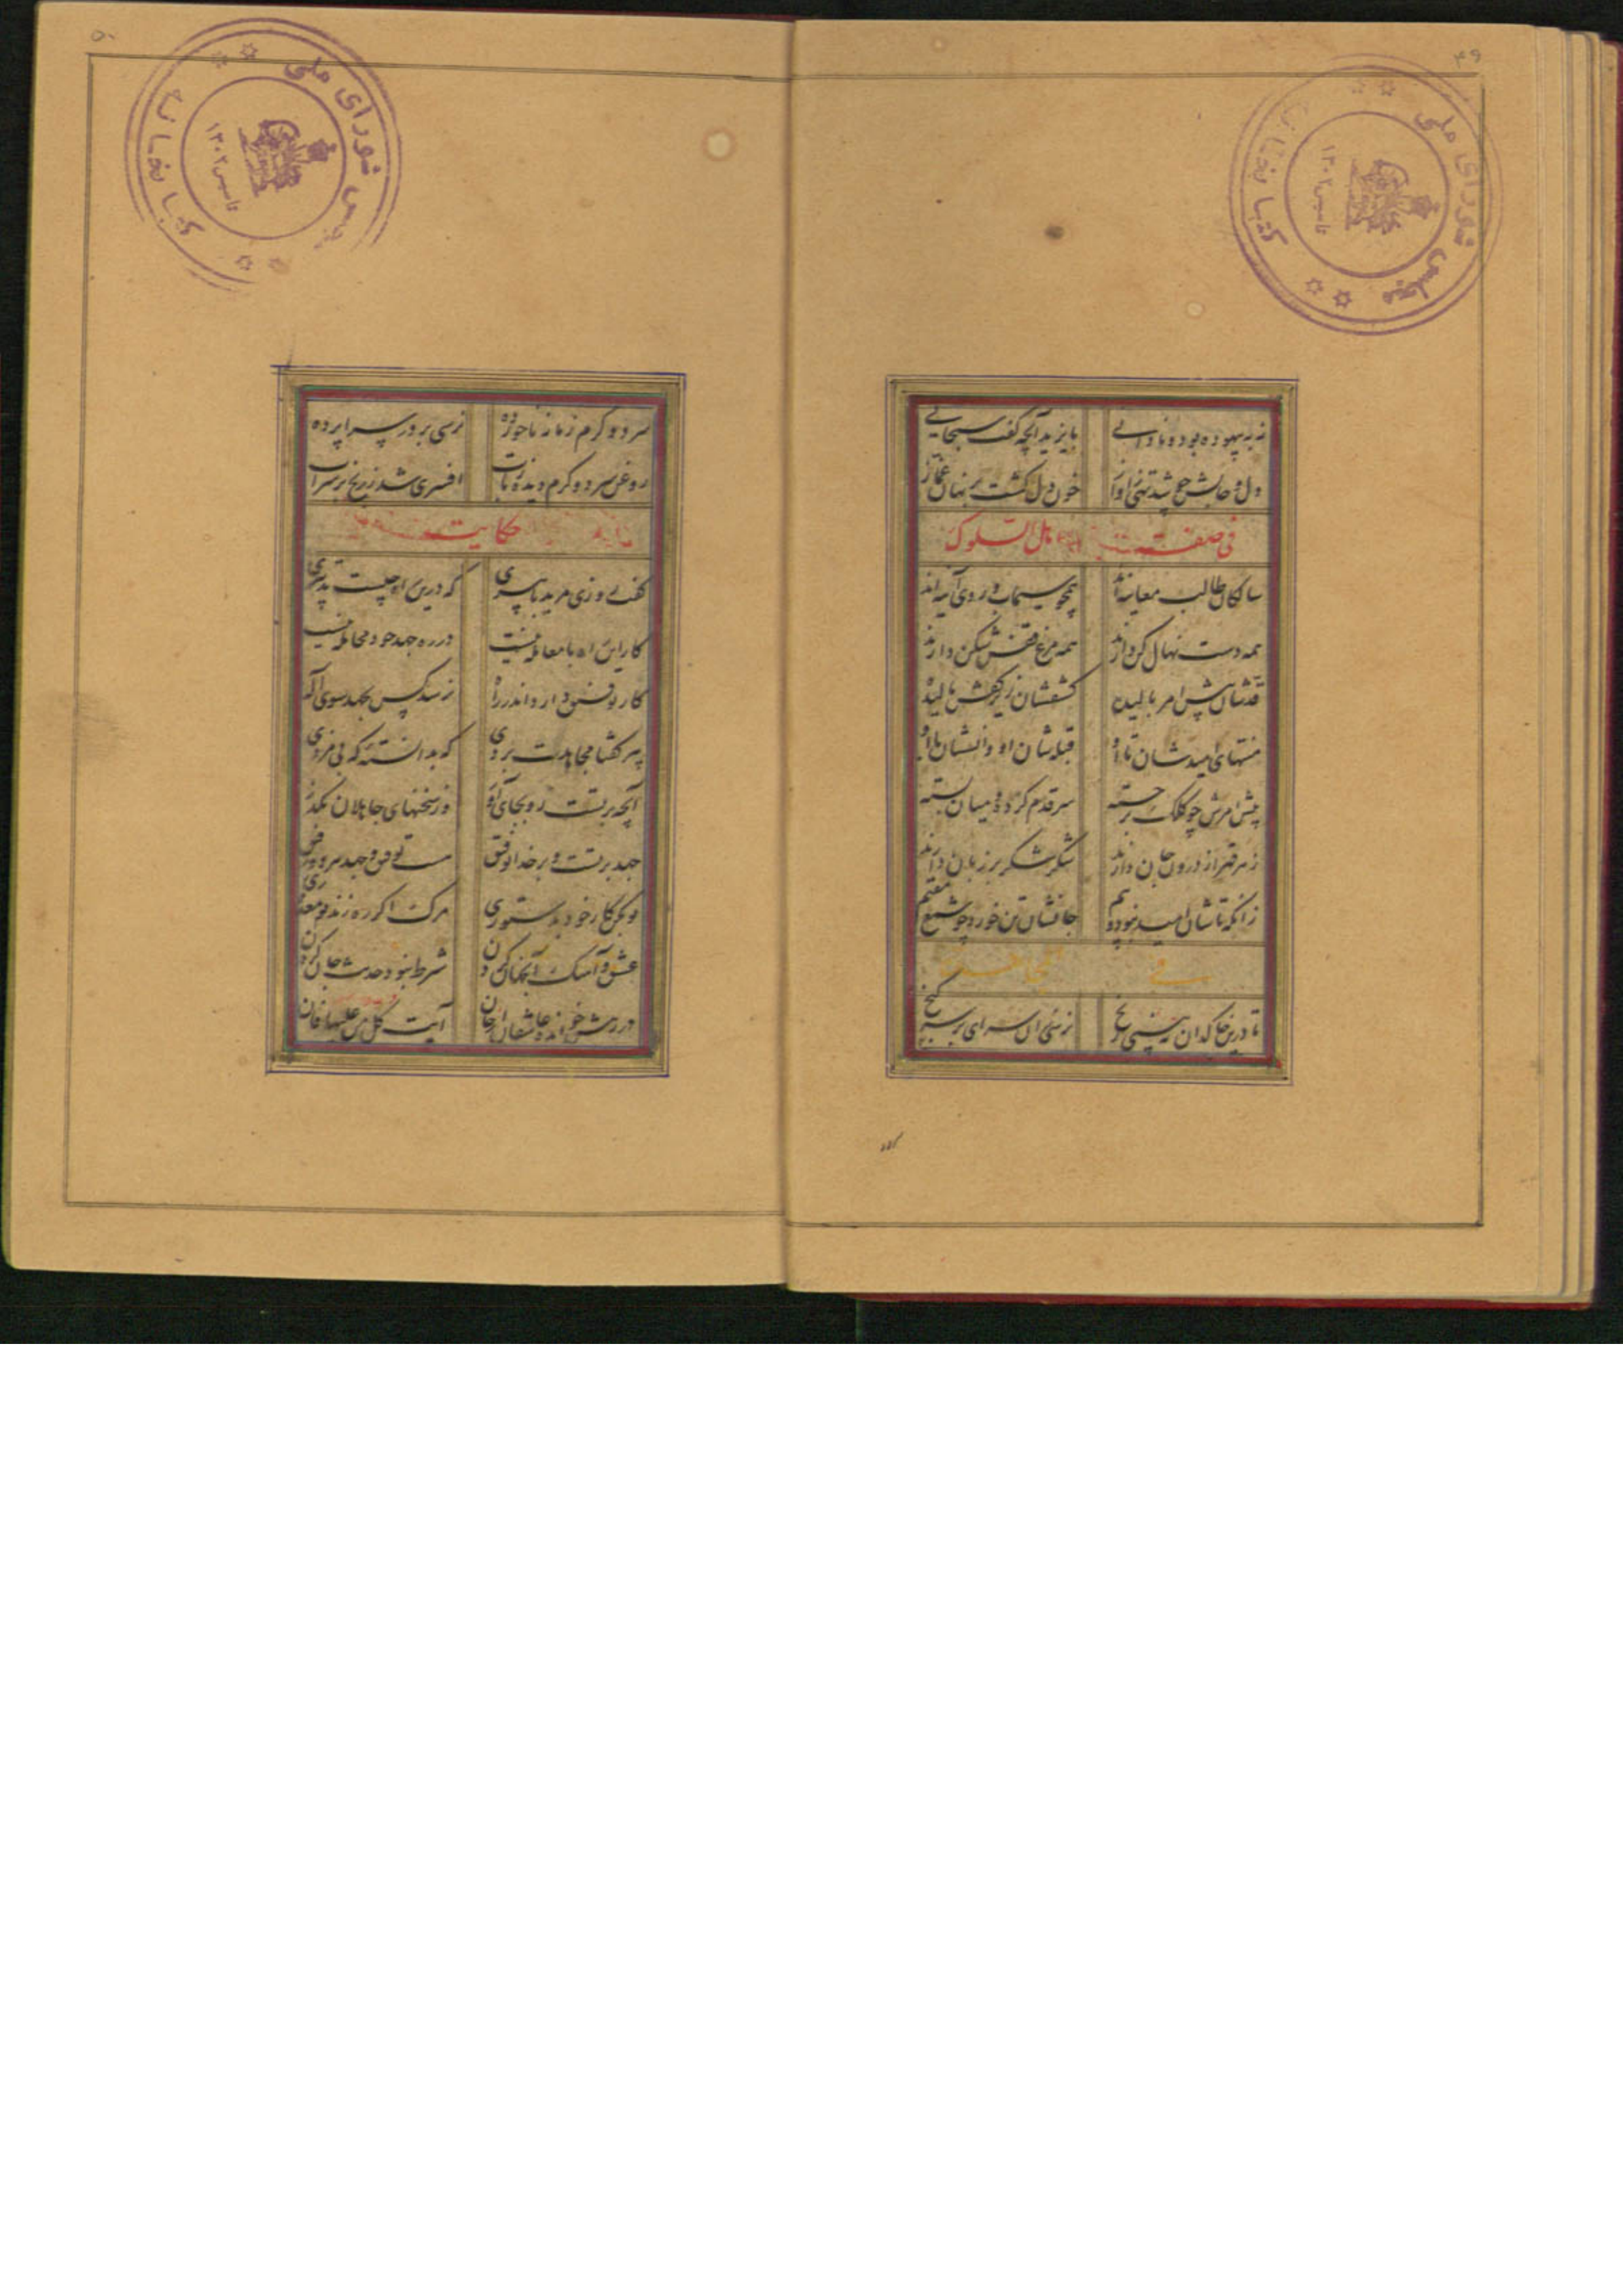 ۴۹
کتابخانه مجلس شورای ملی
تاسیس ۱۳۰۲
نه به بیهوده بود و نادانی بایزید آنچه گفت سبحانی
دل و جانش چو شد تهی ز آواز خون دل گشت بر نهان غماز
فی صفت اهل السلوک
سالکان طالب معاینه‌اند همچو سیماب و روی آینه‌اند
همه دست نهال کن دارند همه مرغ قفس شکن دارند
قدشان پیش امر بالیده کتفشان زیر کفش مالیده
منتهای امیدشان تا او قبله‌شان او و انسشان با او
پیش امرش چو کلک برجسته سر قدم کرده و میان بسته
زهر قهر از درون جان دارند شکر شکر بر زبان دارند
زانکه تاشان امید نبود و بیم جانشان تن خورد چو شمع مقیم
فی المجاهدت
تا درین خاکدان نبینی رنج نرسی زان سرای بر سر گنج
۵۰
کتابخانه مجلس شورای ملی
تاسیس ۱۳۰۲
سرد و گرم زمانه ناخورده نرسی بر در سراپرده
روغن سرد و گرم دیده بتاب افسری شد ز رنج بر سر آب
حکایت
گفت روزی مرید با پیری که درین راه چیست تدبیری
کار این راه با معامله نیست در ره جهد خود مجامله نیست
کار توفیق دارد اندر راه نرسد کس بجهد سوی آله
پیر گفتا مجاهدت بردی که بدانسته‌ که بی مزدی
آنچه بر تست رو بجای آور وز سخنهای جاهلان بگذر
جهد بر تست و بر خدا توفیق هست توفیق و جهد هر دو رفیق
تو بکن کار خود بدستوری مرگت اگر ره زند تو معذوری
عشق و آهنگ آنجهان کردن شرط نبود حدیث جان کردن
در رهش خوانده عاشقان از جان آیت کل من علیها فان